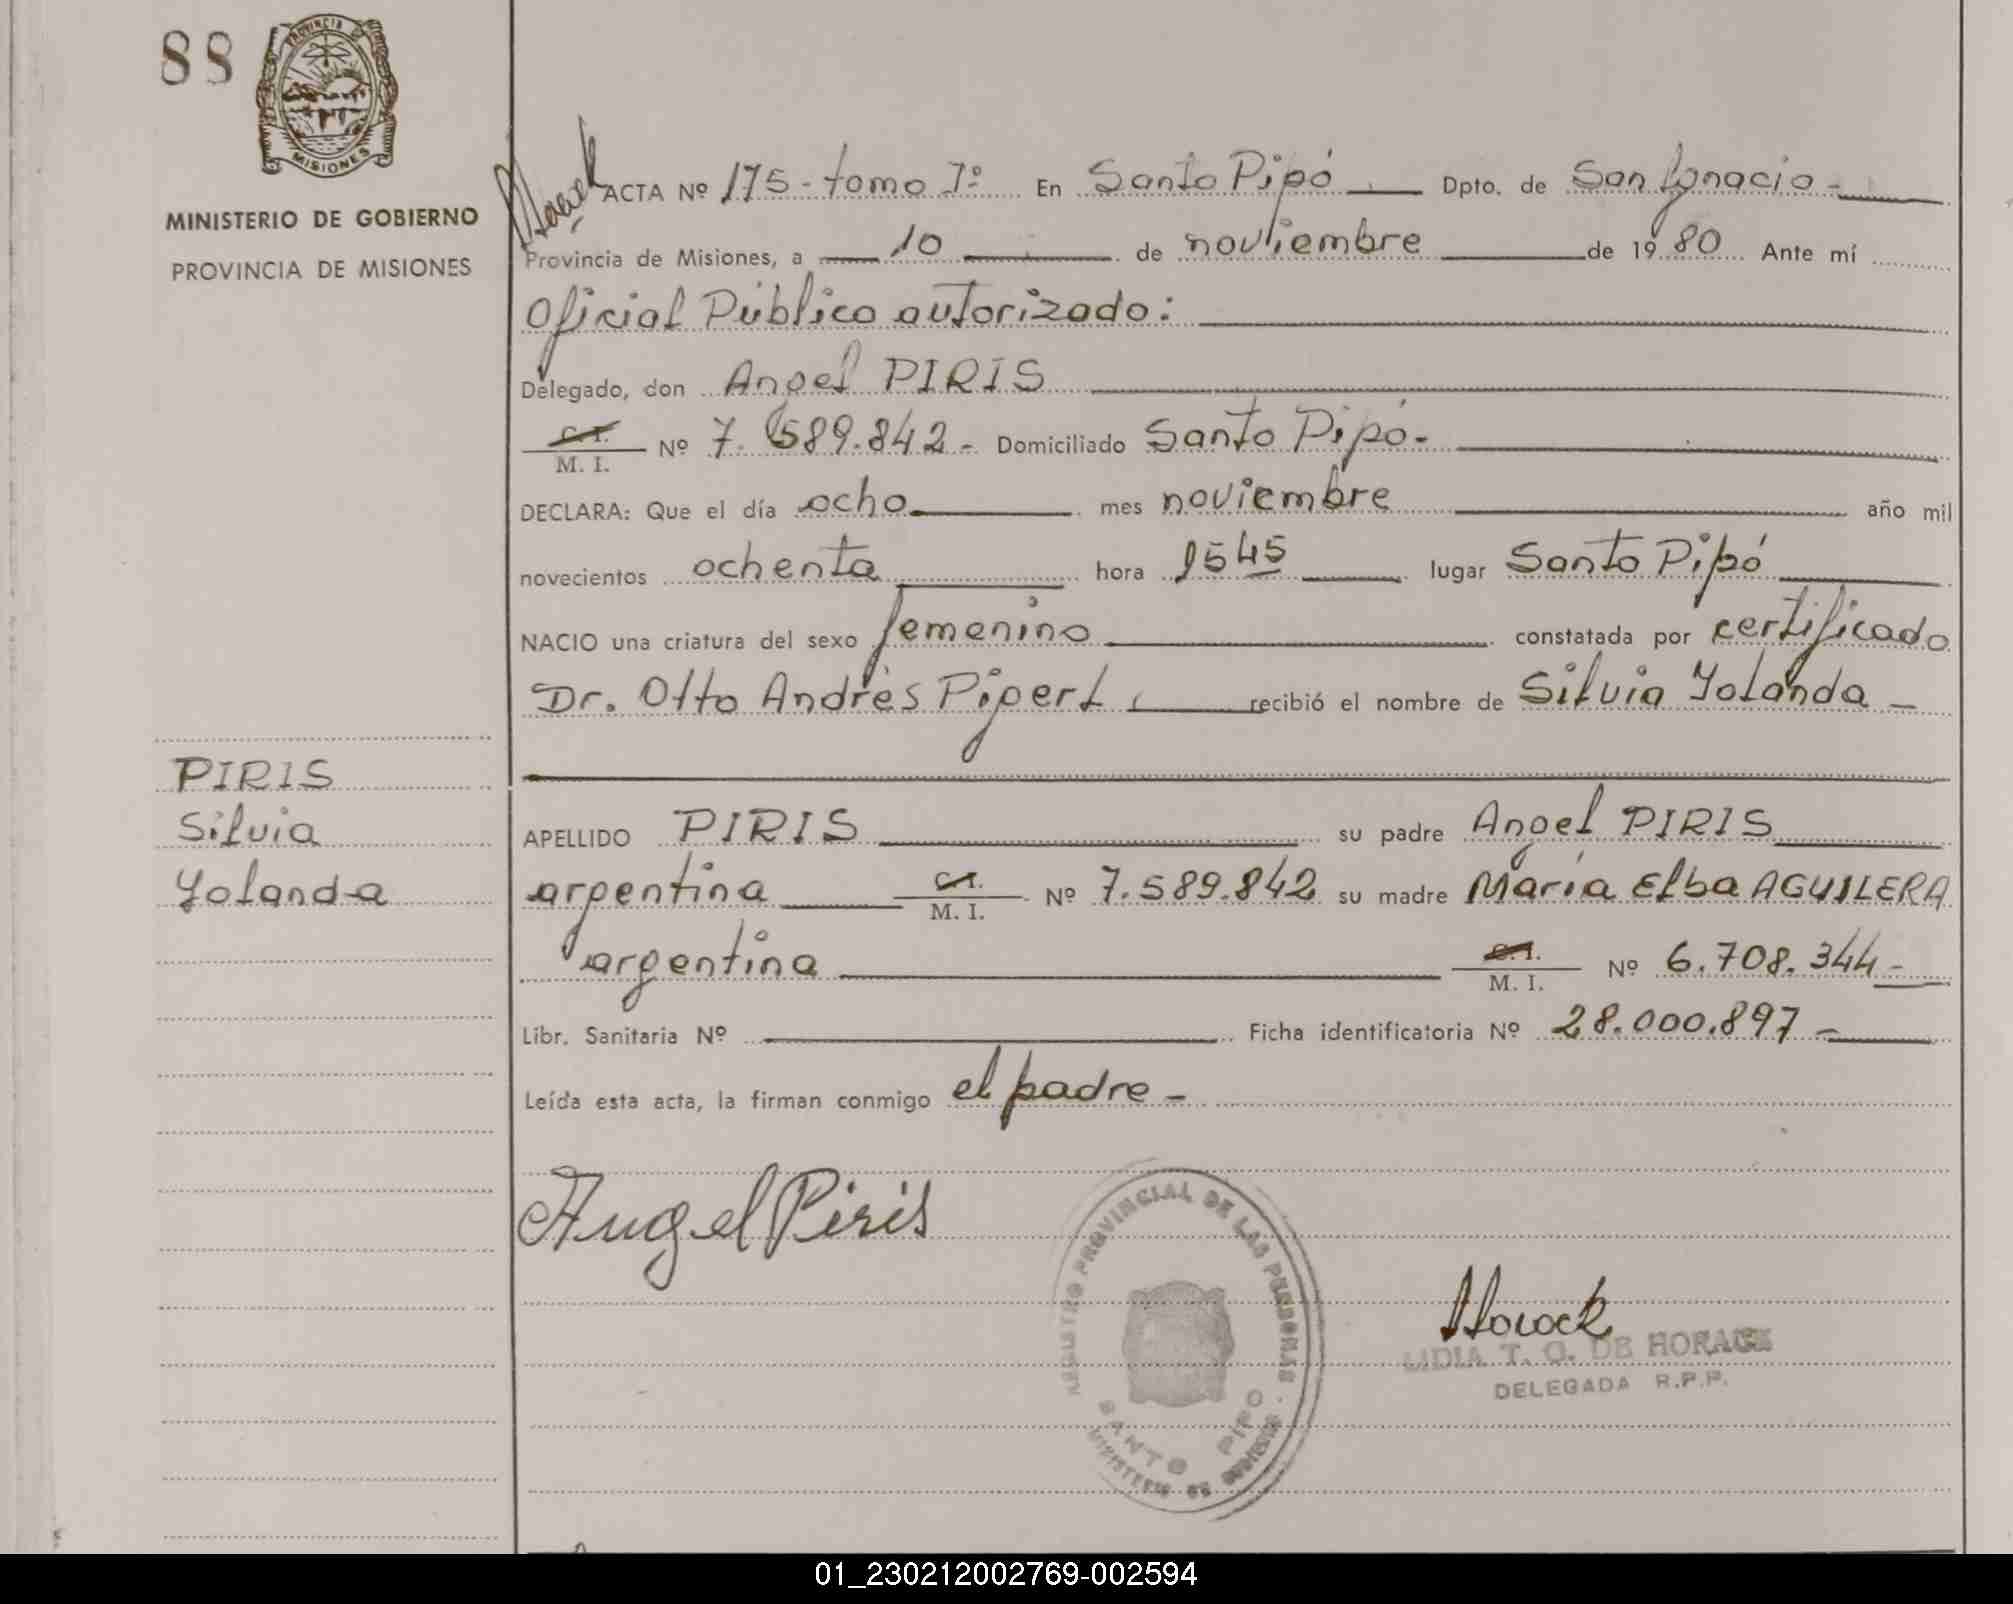 88
PROVINCIA DE
MISIONES
MINISTERIO DE GOBIERNO
PROVINCIA DE MISIONES
ACTA Nº 175 - tomo 1º En Santo Pipó Dpto. de San Ignacio -
Provincia de Misiones, a 10 de noviembre de 1980 Ante mí
Oficial Público autorizado:
Delegado, don Angel PIRIS
C. I.
M. I. Nº 7.589.842 - Domiciliado Santo Pipó.
DECLARA: Que el día ocho mes noviembre año mil
novecientos ochenta hora 1545 lugar Santo Pipó
NACIO una criatura del sexo femenino constatada por certificado
Dr. Otto Andrés Pipert, recibió el nombre de Silvia Yolanda -
PIRIS
Silvia
Yolanda
APELLIDO PIRIS su padre Angel PIRIS
argentina C. I.
M. I. Nº 7.589.842 su madre María Elba AGUILERA
argentina C. I.
M. I. Nº 6.708.344 -
Libr. Sanitaria Nº Ficha identificatoria Nº 28.000.897 -
Leída esta acta, la firman conmigo el padre -
Angel Piris
REGISTRO PROVINCIAL DE LAS PERSONAS
SANTO PIPO
MINISTERIO DE GOBIERNO
Horack
LIDIA T. O. DE HORACK
DELEGADA R.P.P.
01_230212002769-002594